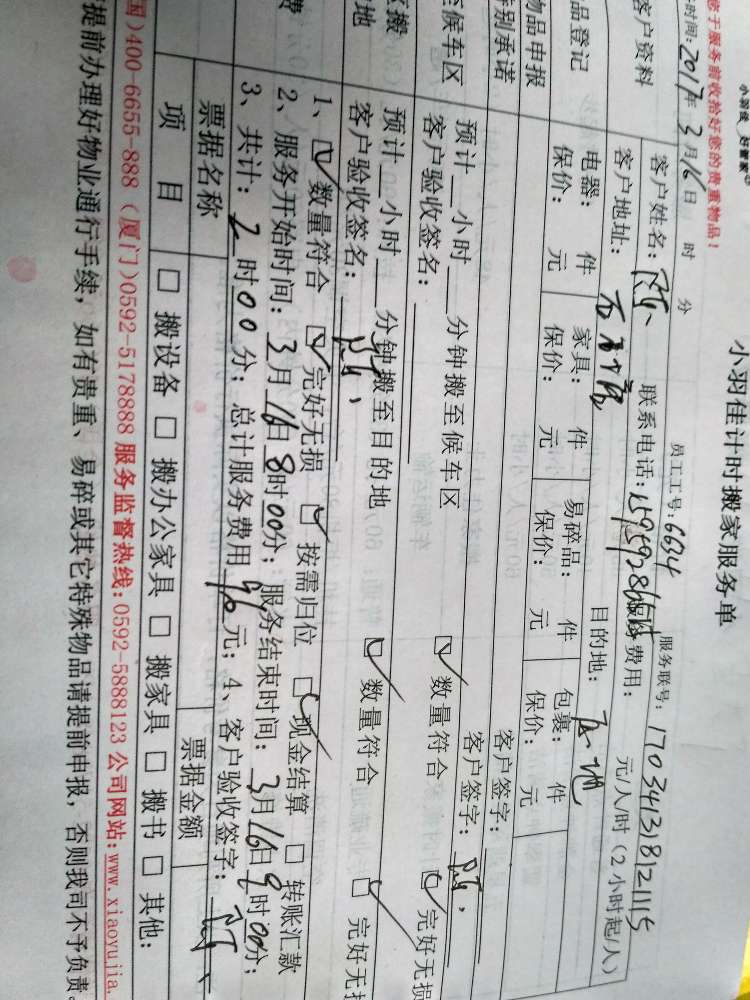 小羽佳计时搬家服务单
员工工号:6634 服务联号:17034131812
时间:2017年3月16日 时 分
客户资料
客户姓名: 联系电话: 费用: 元/人时(2小时起/人)
客户地址: 目的地:
品登记
电器: 件 家具: 件 易碎品: 件 包裹: 件
保价: 元 保价: 元 保价: 元 保价: 元
物品申报
客户签字:
特别承诺
客户签字:
至候车区
预计 小时 分钟搬至候车区 数量符合 完好无损
客户验收签名:
预计 小时 分钟搬至目的地 数量符合 完好无损
客户验收签名:
1、 数量符合 完好无损 按需归位 现金结算 转账汇款
2、服务开始时间:3月16日8时00分;服务结束时间:3月16日9时00分;
3、共计:2时00分;总计服务费用 元;4、客户验收签字:
票据名称 票据金额
项目 搬设备 搬办公家具 搬家具 搬书 其他:
国)400-6655-888(厦门)0592-5178888 服务监督热线:0592-5888123 公司网站:www.xiaoyujia.
提前办理好物业通行手续,如有贵重、易碎或其它特殊物品请提前申报,否则我司不予负责。
您于服务前收拾好您的贵重物品!